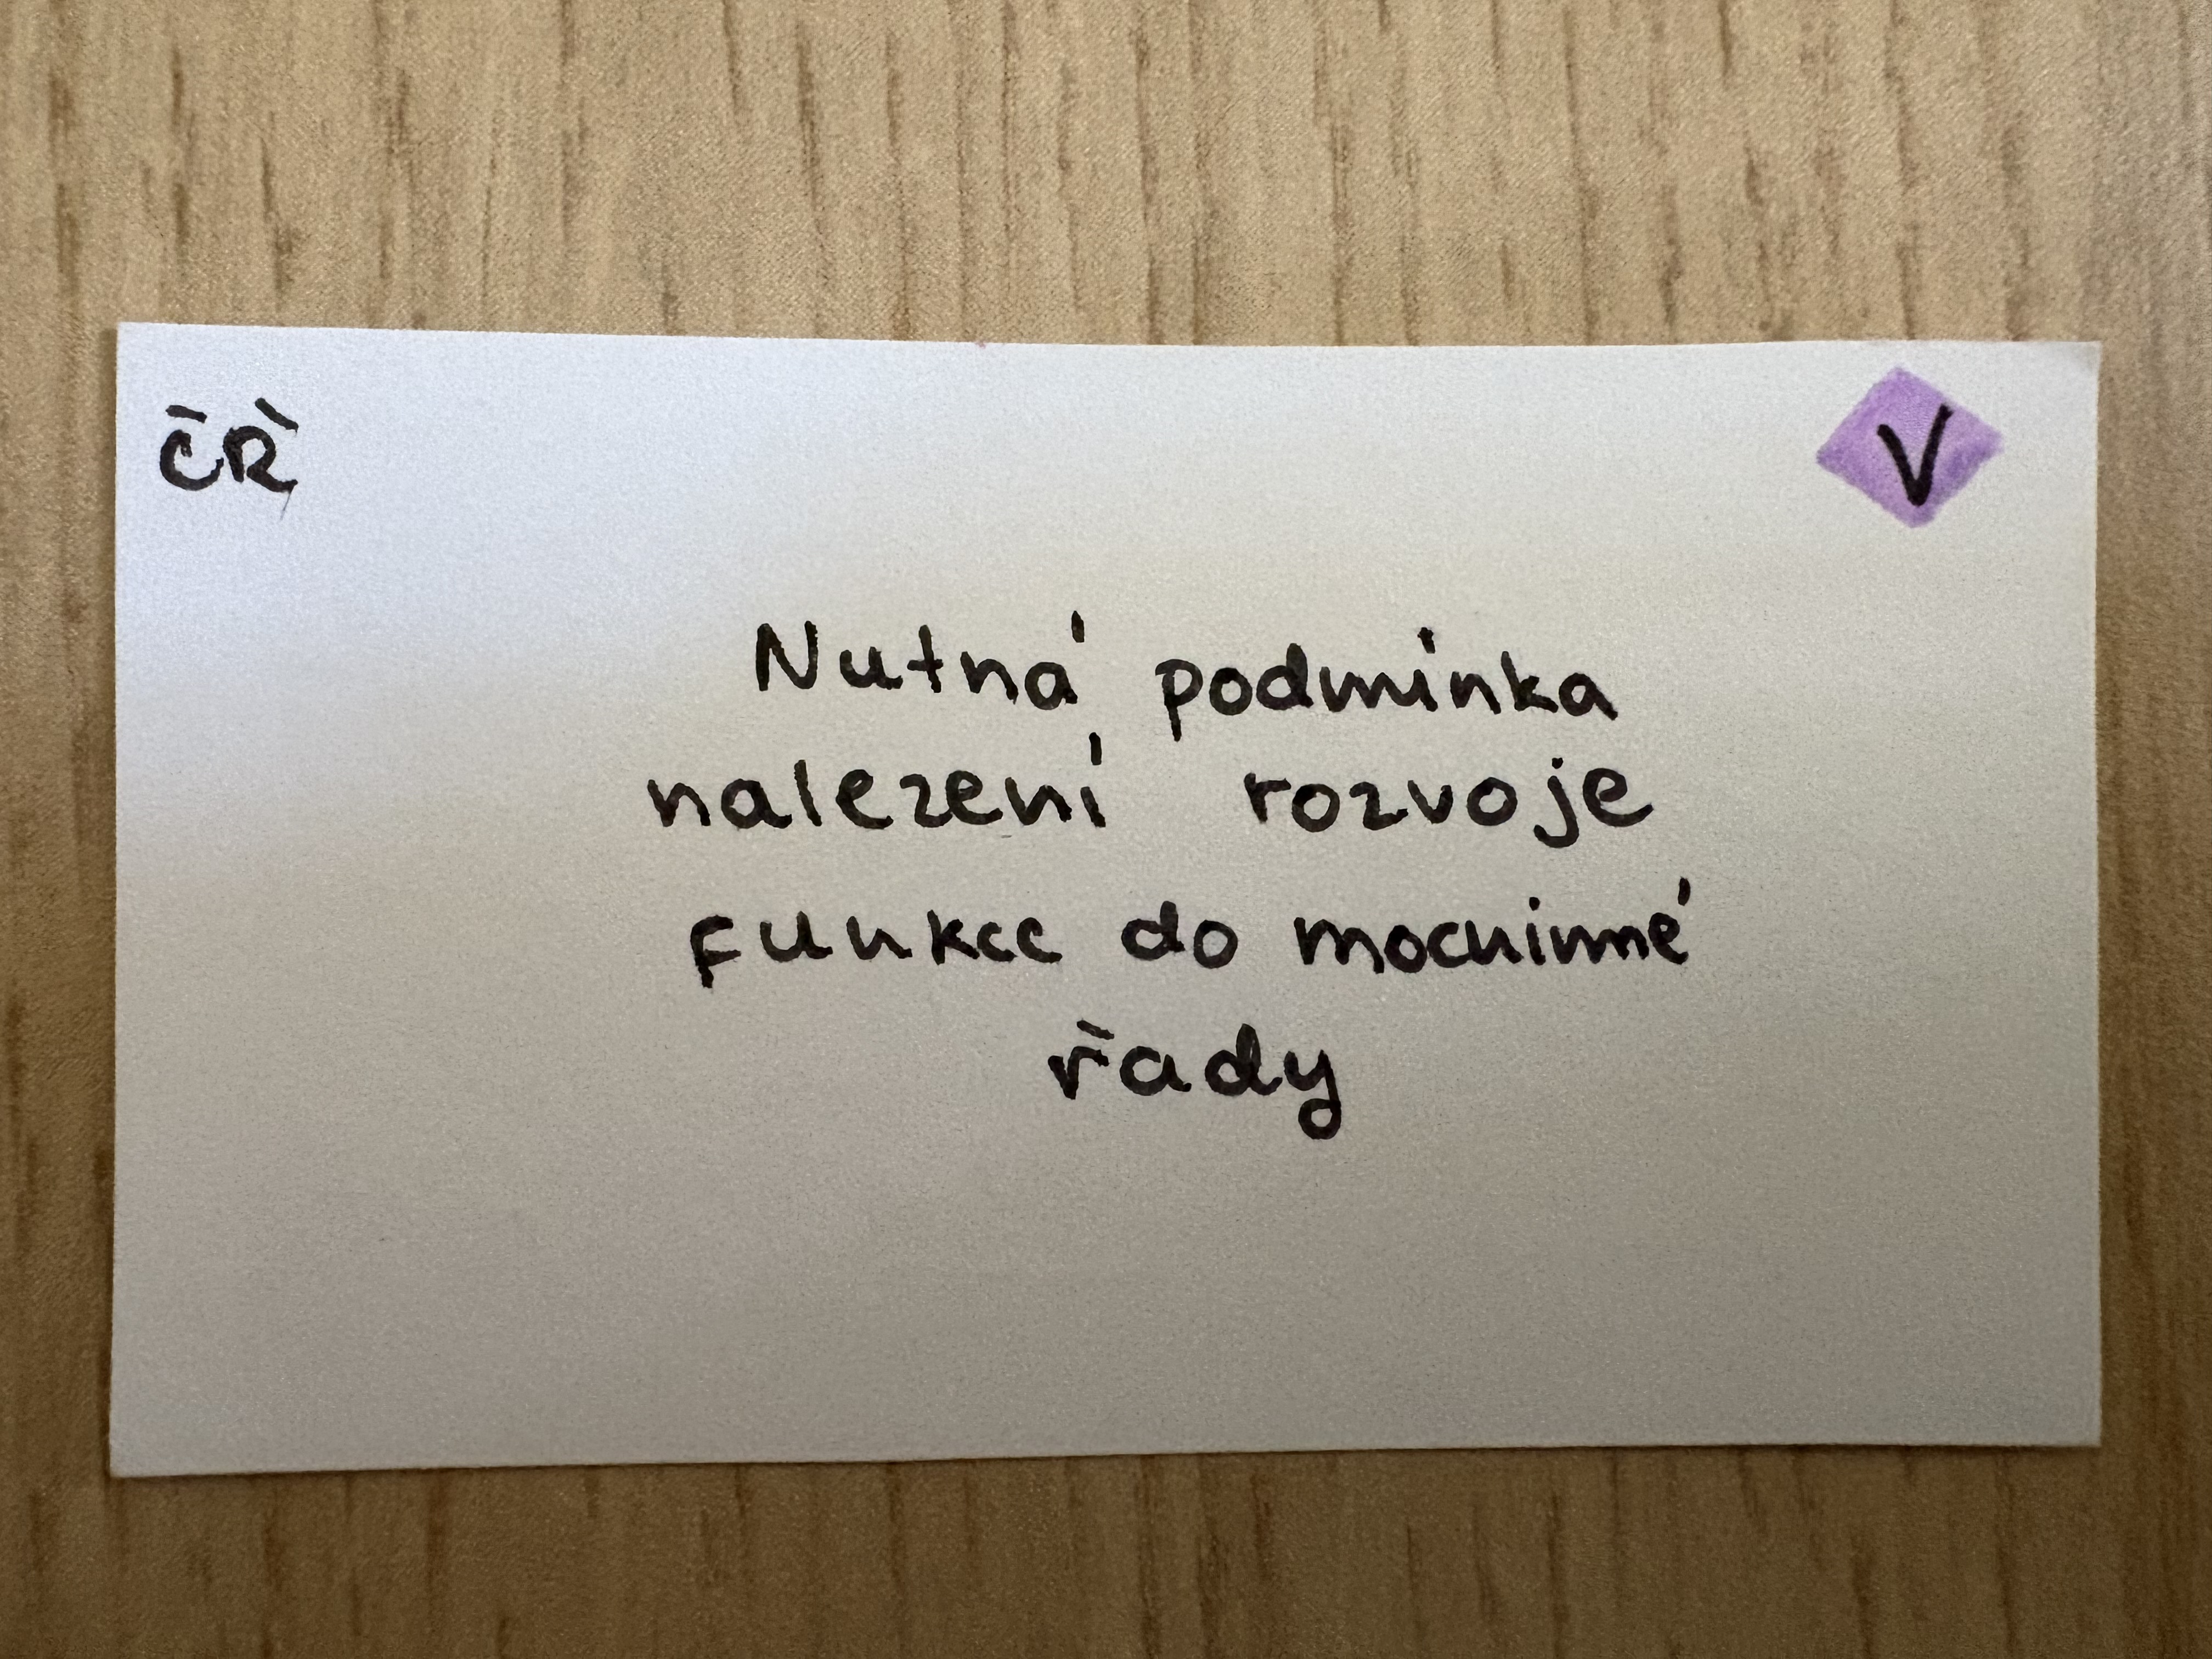 ČŘ
V
Nutná podmínka
nalezení rozvoje
funkce do mocninné
řady